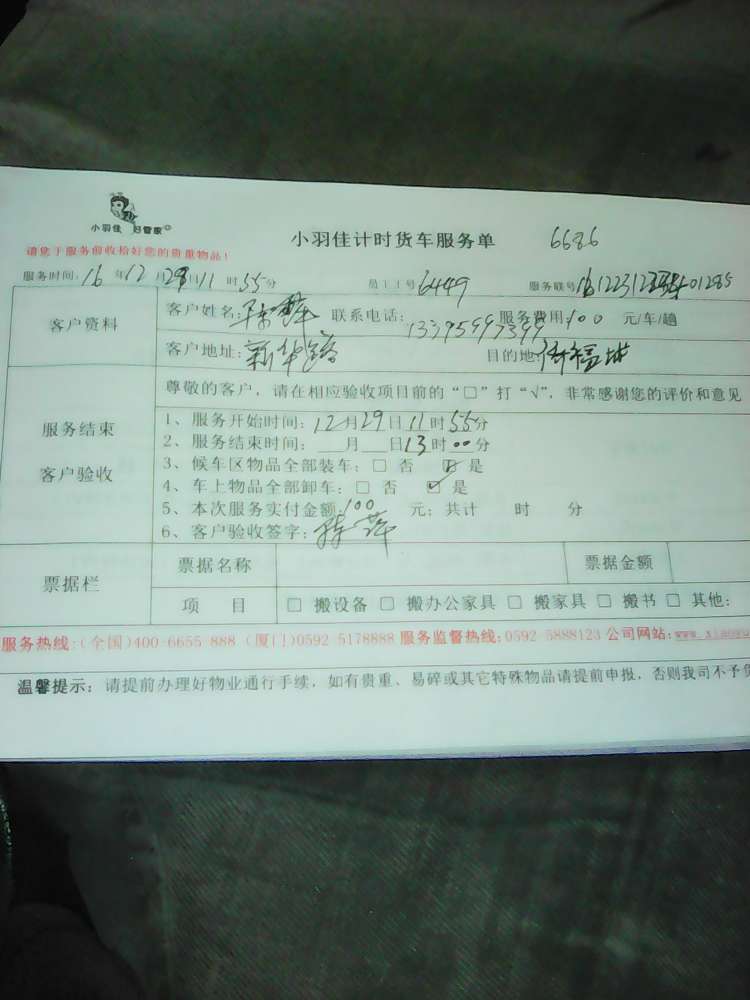 小羽佳 好管家
小羽佳计时货车服务单 6686
请您于服务前收拾好您的贵重物品!
服务时间: 16 年 12 月 29 日 11 时 55 分 员工号 6449 服务联号
客户资料
客户姓名: 联系电话: 13395997399 服务费用: 100 元/车/趟
客户地址: 新华路 目的地:
尊敬的客户, 请在相应验收项目前的“□”打“√”, 非常感谢您的评价和意见
服务结束
客户验收
1、服务开始时间: 12月29日11时55分
2、服务结束时间: 月 日13时00分
3、候车区物品全部装车: □ 否 ☑ 是
4、车上物品全部卸车: □ 否 ☑ 是
5、本次服务实付金额: 100 元; 共计 时 分
6、客户验收签字:
票据栏
票据名称 票据金额
项 目 □ 搬设备 □ 搬办公家具 □ 搬家具 □ 搬书 □ 其他:
服务热线:(全国)400-6655-888 (厦门)0592-5178888 服务监督热线: 0592-5888123 公司网站:
温馨提示: 请提前办理好物业通行手续, 如有贵重、易碎或其它特殊物品请提前申报, 否则我司不予